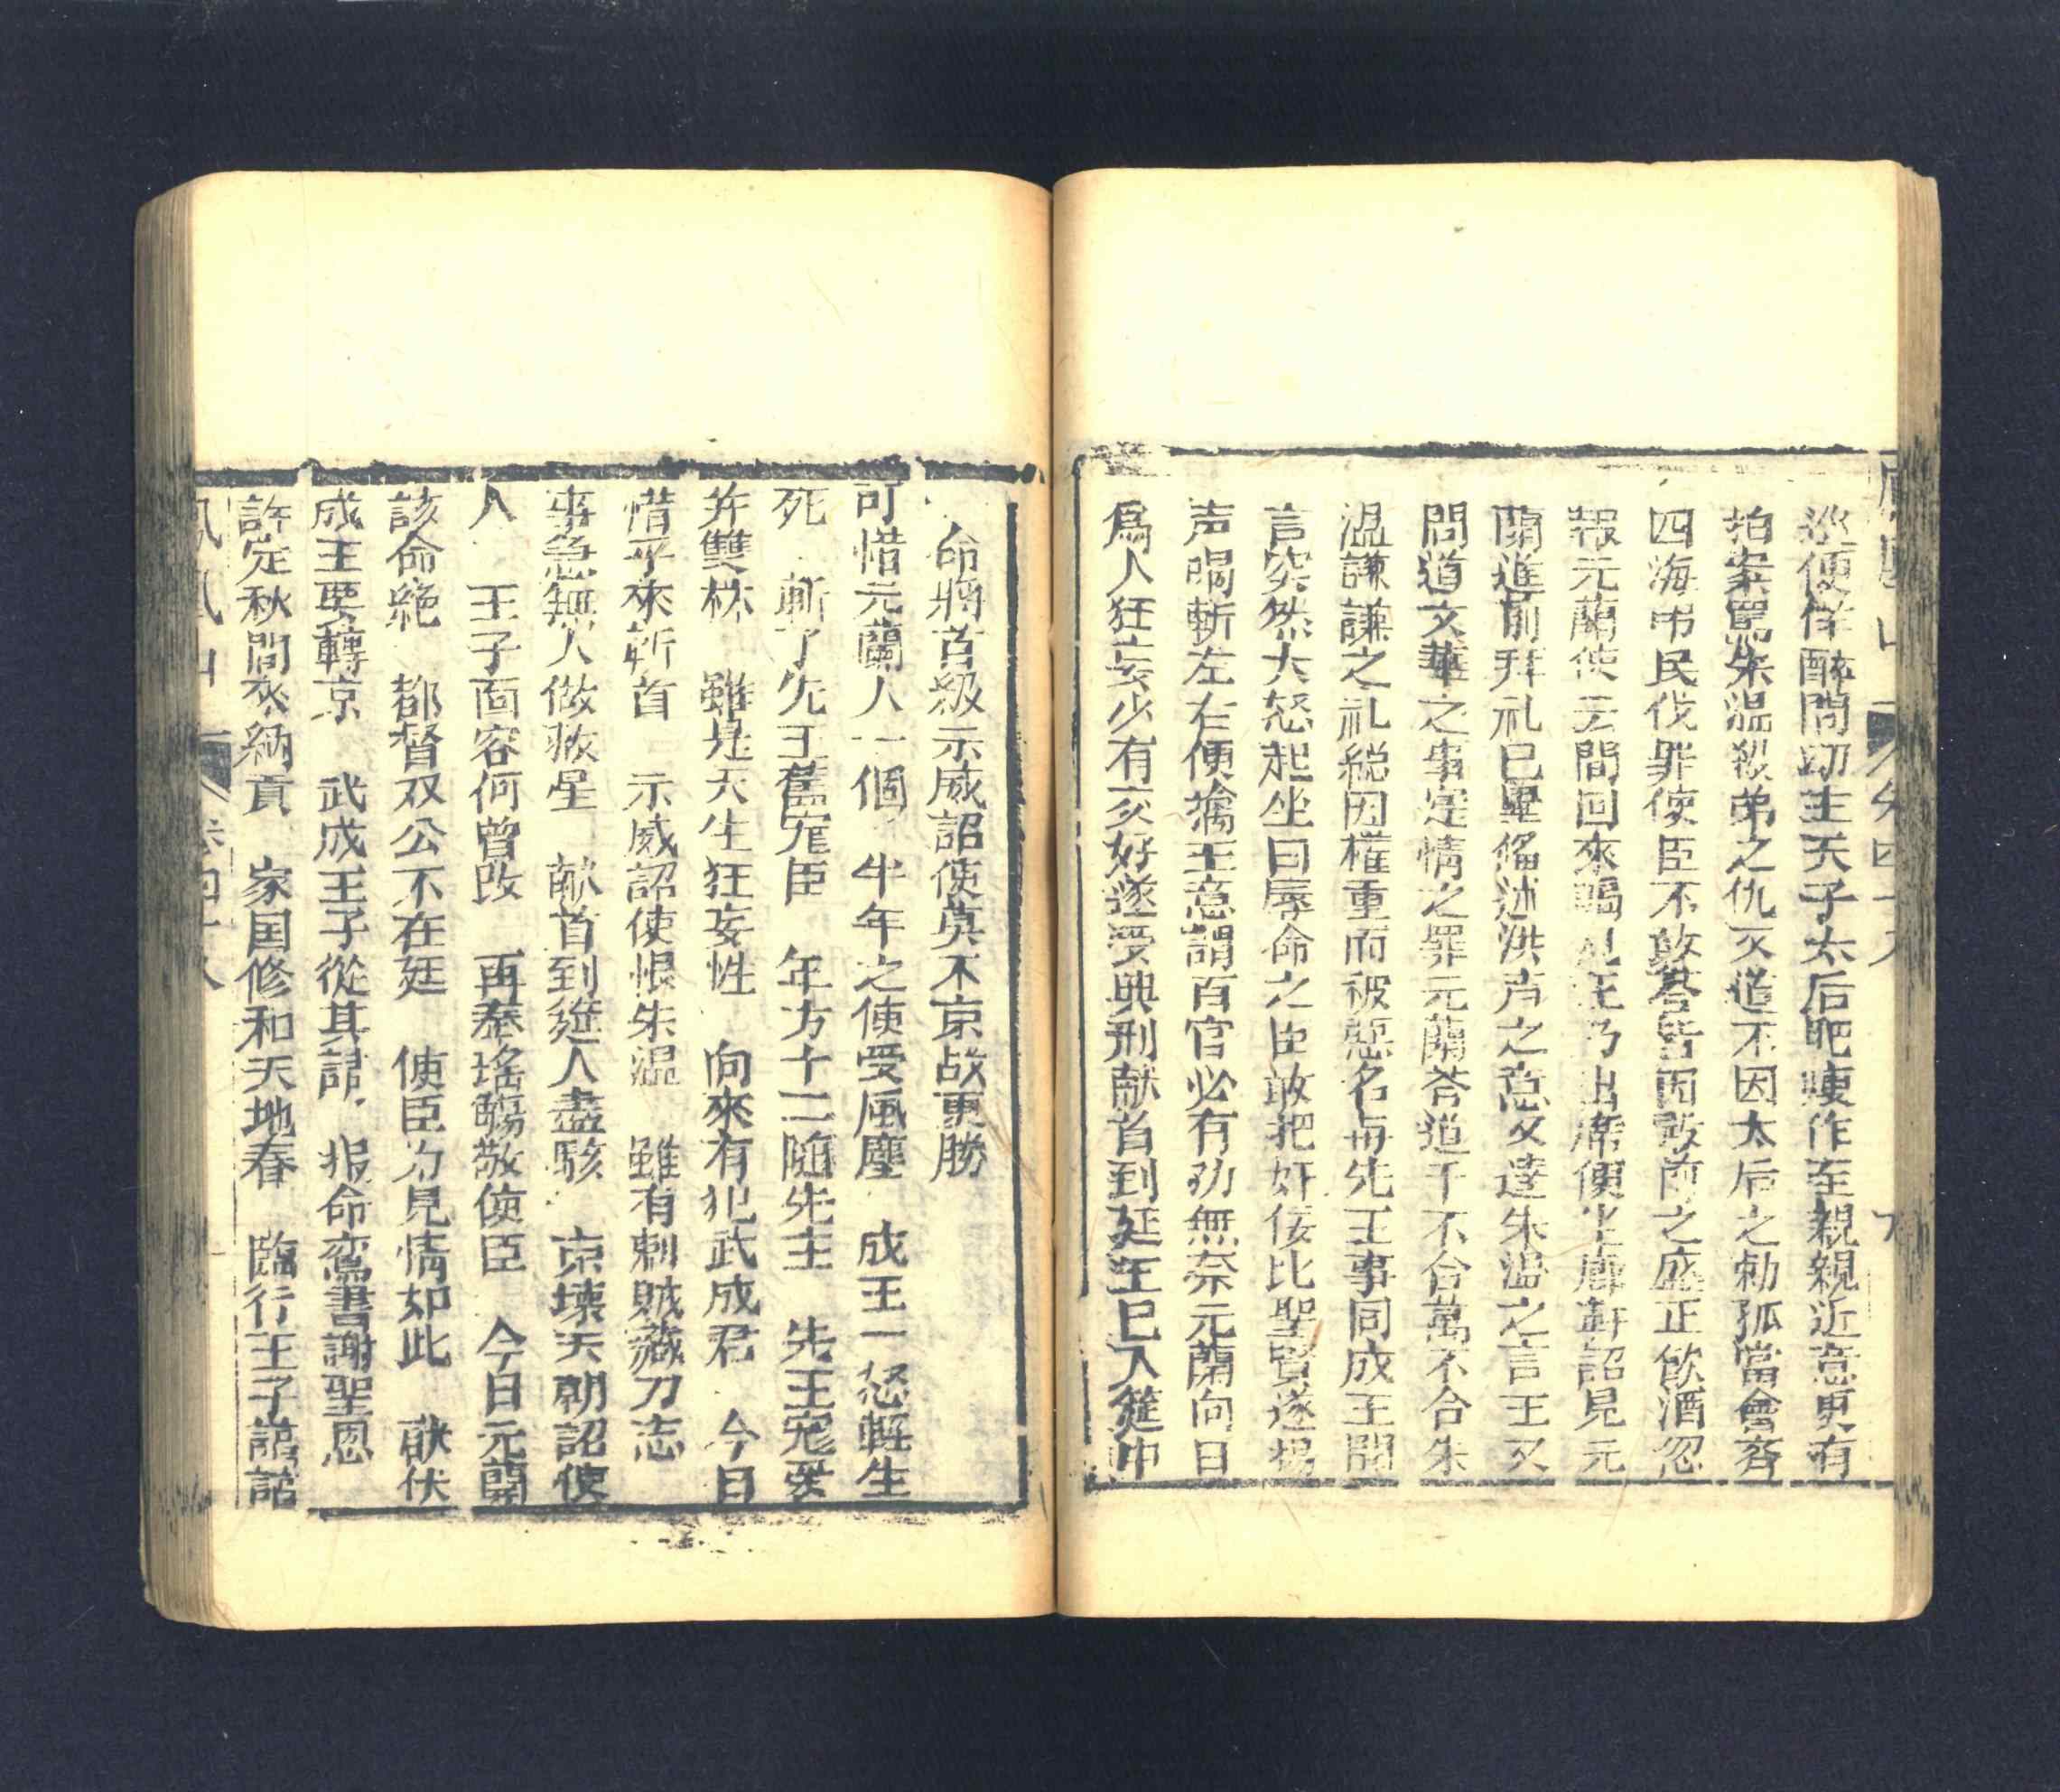 鳳凰山 卷四十九
巡便佯醉問幼主天子太后肥痩作至親親近意更有
拍案罵朱温殺弟之仇又道不因太后之勅孤當會齊
四海弔民伐罪使臣不敢答皆因敢前之盛正飲酒忽
報元蘭使云間回來謁見王乃出席便坐廊軒詔見元
蘭進前拜礼已畢俻述洪声之意又達朱温之言王又
問道文華之事定情之罪元蘭答道千不合萬不合朱
温謙謙之礼總因權重而被惡名毎先王事同成王聞
言突然大怒起坐曰辱命之臣敢把奸佞比聖賢遂揚
声喝斬左右便擒王意謂百官必有劝無奈元蘭向日
爲人狂妄少有交好遂受典刑献首到廷王已入筵中
命將首級示威詔使莫不京战更勝
可惜元蘭人一個 半年之使受風塵 成王一怒輕生
死 斬了先王舊寃臣 年方十二隨先主 先王寃妥
并雙林 雖是天生狂妄性 向來有犯武成君 今日
惜乎來斩首 示威詔使恨朱温 雖有刺賊藏刀志
事急無人做救星 献首到筵人盡駭 京壊天朝詔使
人 王子面容何曾改 再奉瑤觴敬使臣 今日元蘭
該命絶 都督双公不在廷 使臣为見情如此 歃伏
成王要轉京 武成王子從其請 报命鸞書謝聖恩
許定秋間來納貢 家国修和天地春 臨行王子諄諄
鳳凰山 卷四十八